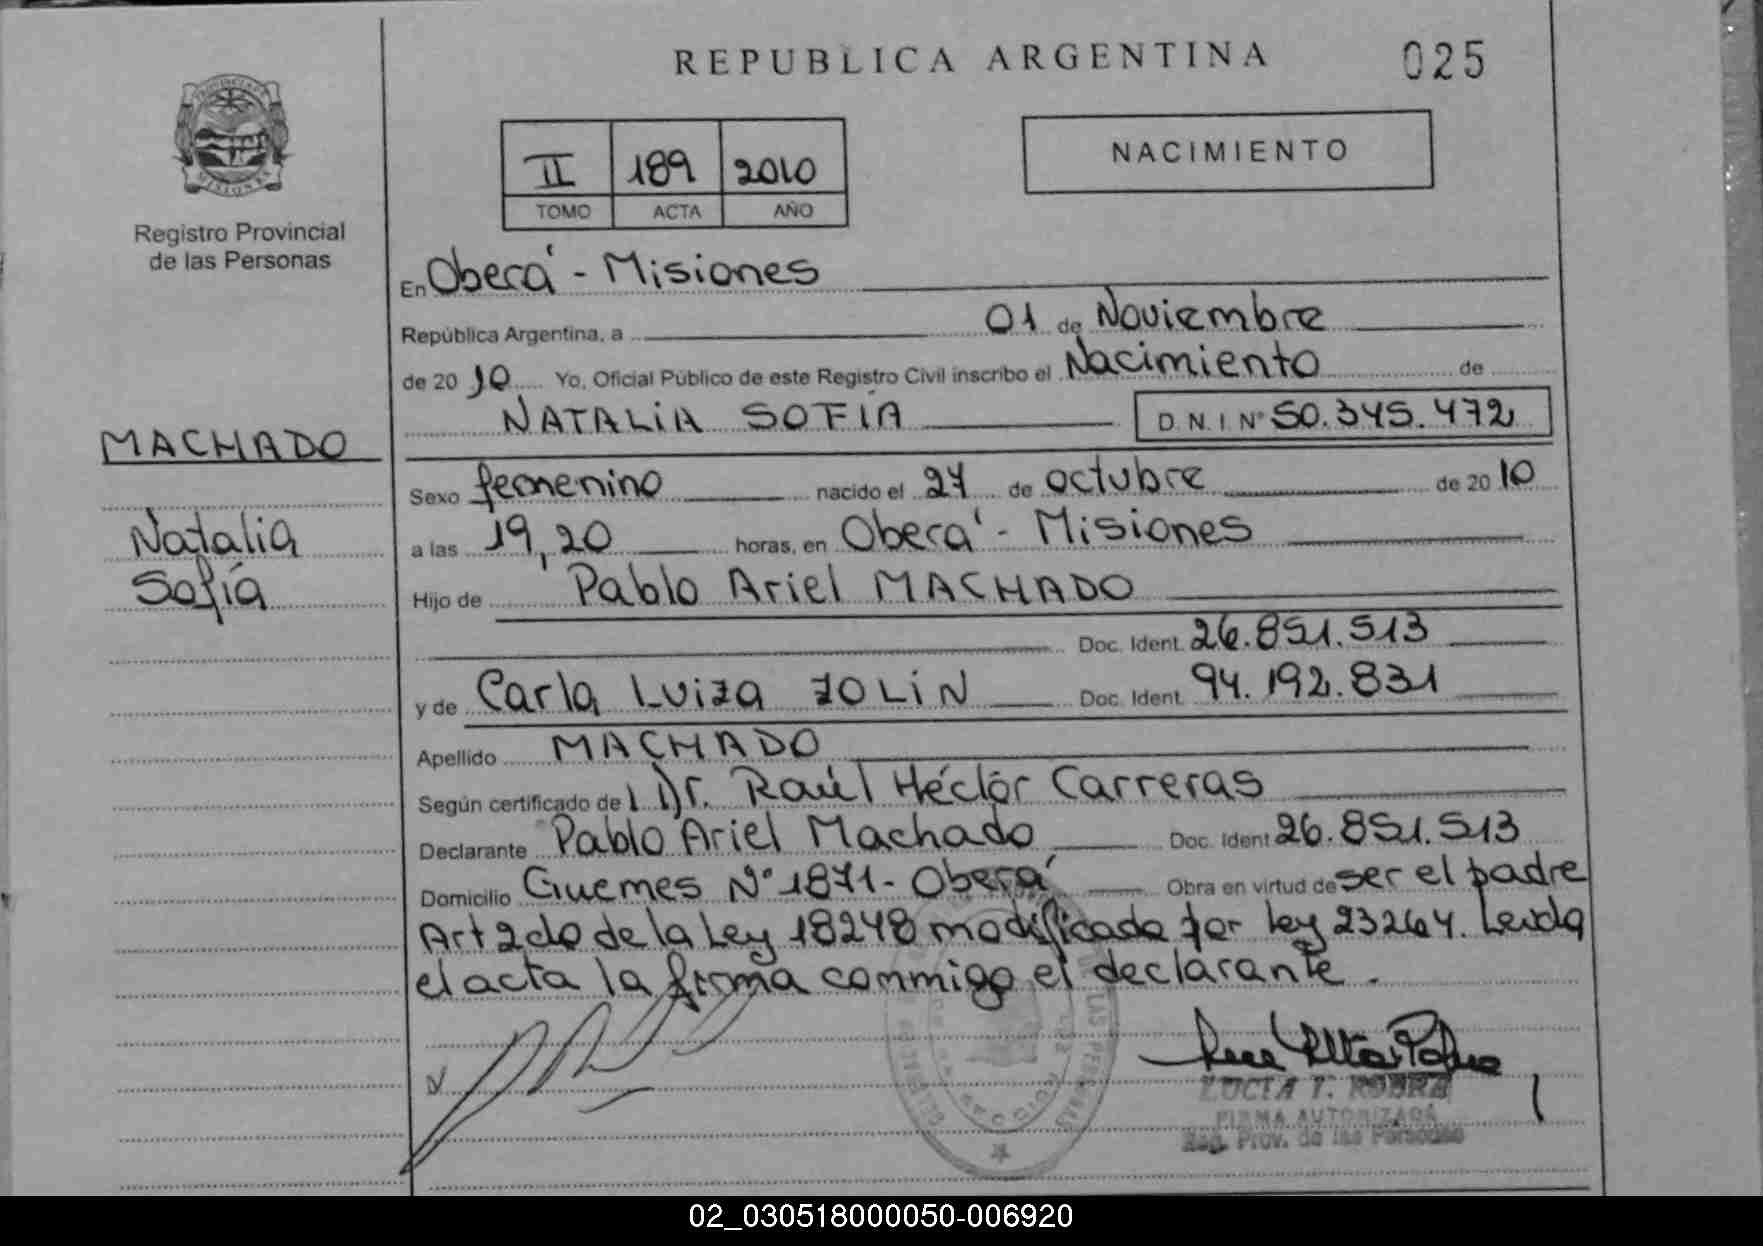 REPUBLICA ARGENTINA
025
PROVINCIA DE
MISIONES
Registro Provincial
de las Personas
II 189 2010
TOMO ACTA AÑO
NACIMIENTO
En Oberá - Misiones
República Argentina, a 01 de Noviembre
de 2010 Yo, Oficial Público de este Registro Civil inscribo el Nacimiento de
NATALIA SOFÍA D.N.I N° 50.345.472
MACHADO
Natalia
Sofía
Sexo femenino nacido el 27 de octubre de 2010
a las 19,20 horas, en Oberá - Misiones
Hijo de Pablo Ariel MACHADO
Doc. Ident. 26.851.513
y de Carla Luiza ZOLIN Doc. Ident. 94.192.831
Apellido MACHADO
Según certificado del Dr. Raúl Héctor Carreras
Declarante Pablo Ariel Machado Doc. Ident 26.851.513
Domicilio Guemes N° 1871 - Oberá Obra en virtud de ser el padre
Art 2do de la Ley 18248 modificada por ley 23264. Leida
el acta la firma conmigo el declarante.
LUCIA T. ROBRA
FIRMA AUTORIZADA
Reg. Prov. de las Personas
02_030518000050-006920